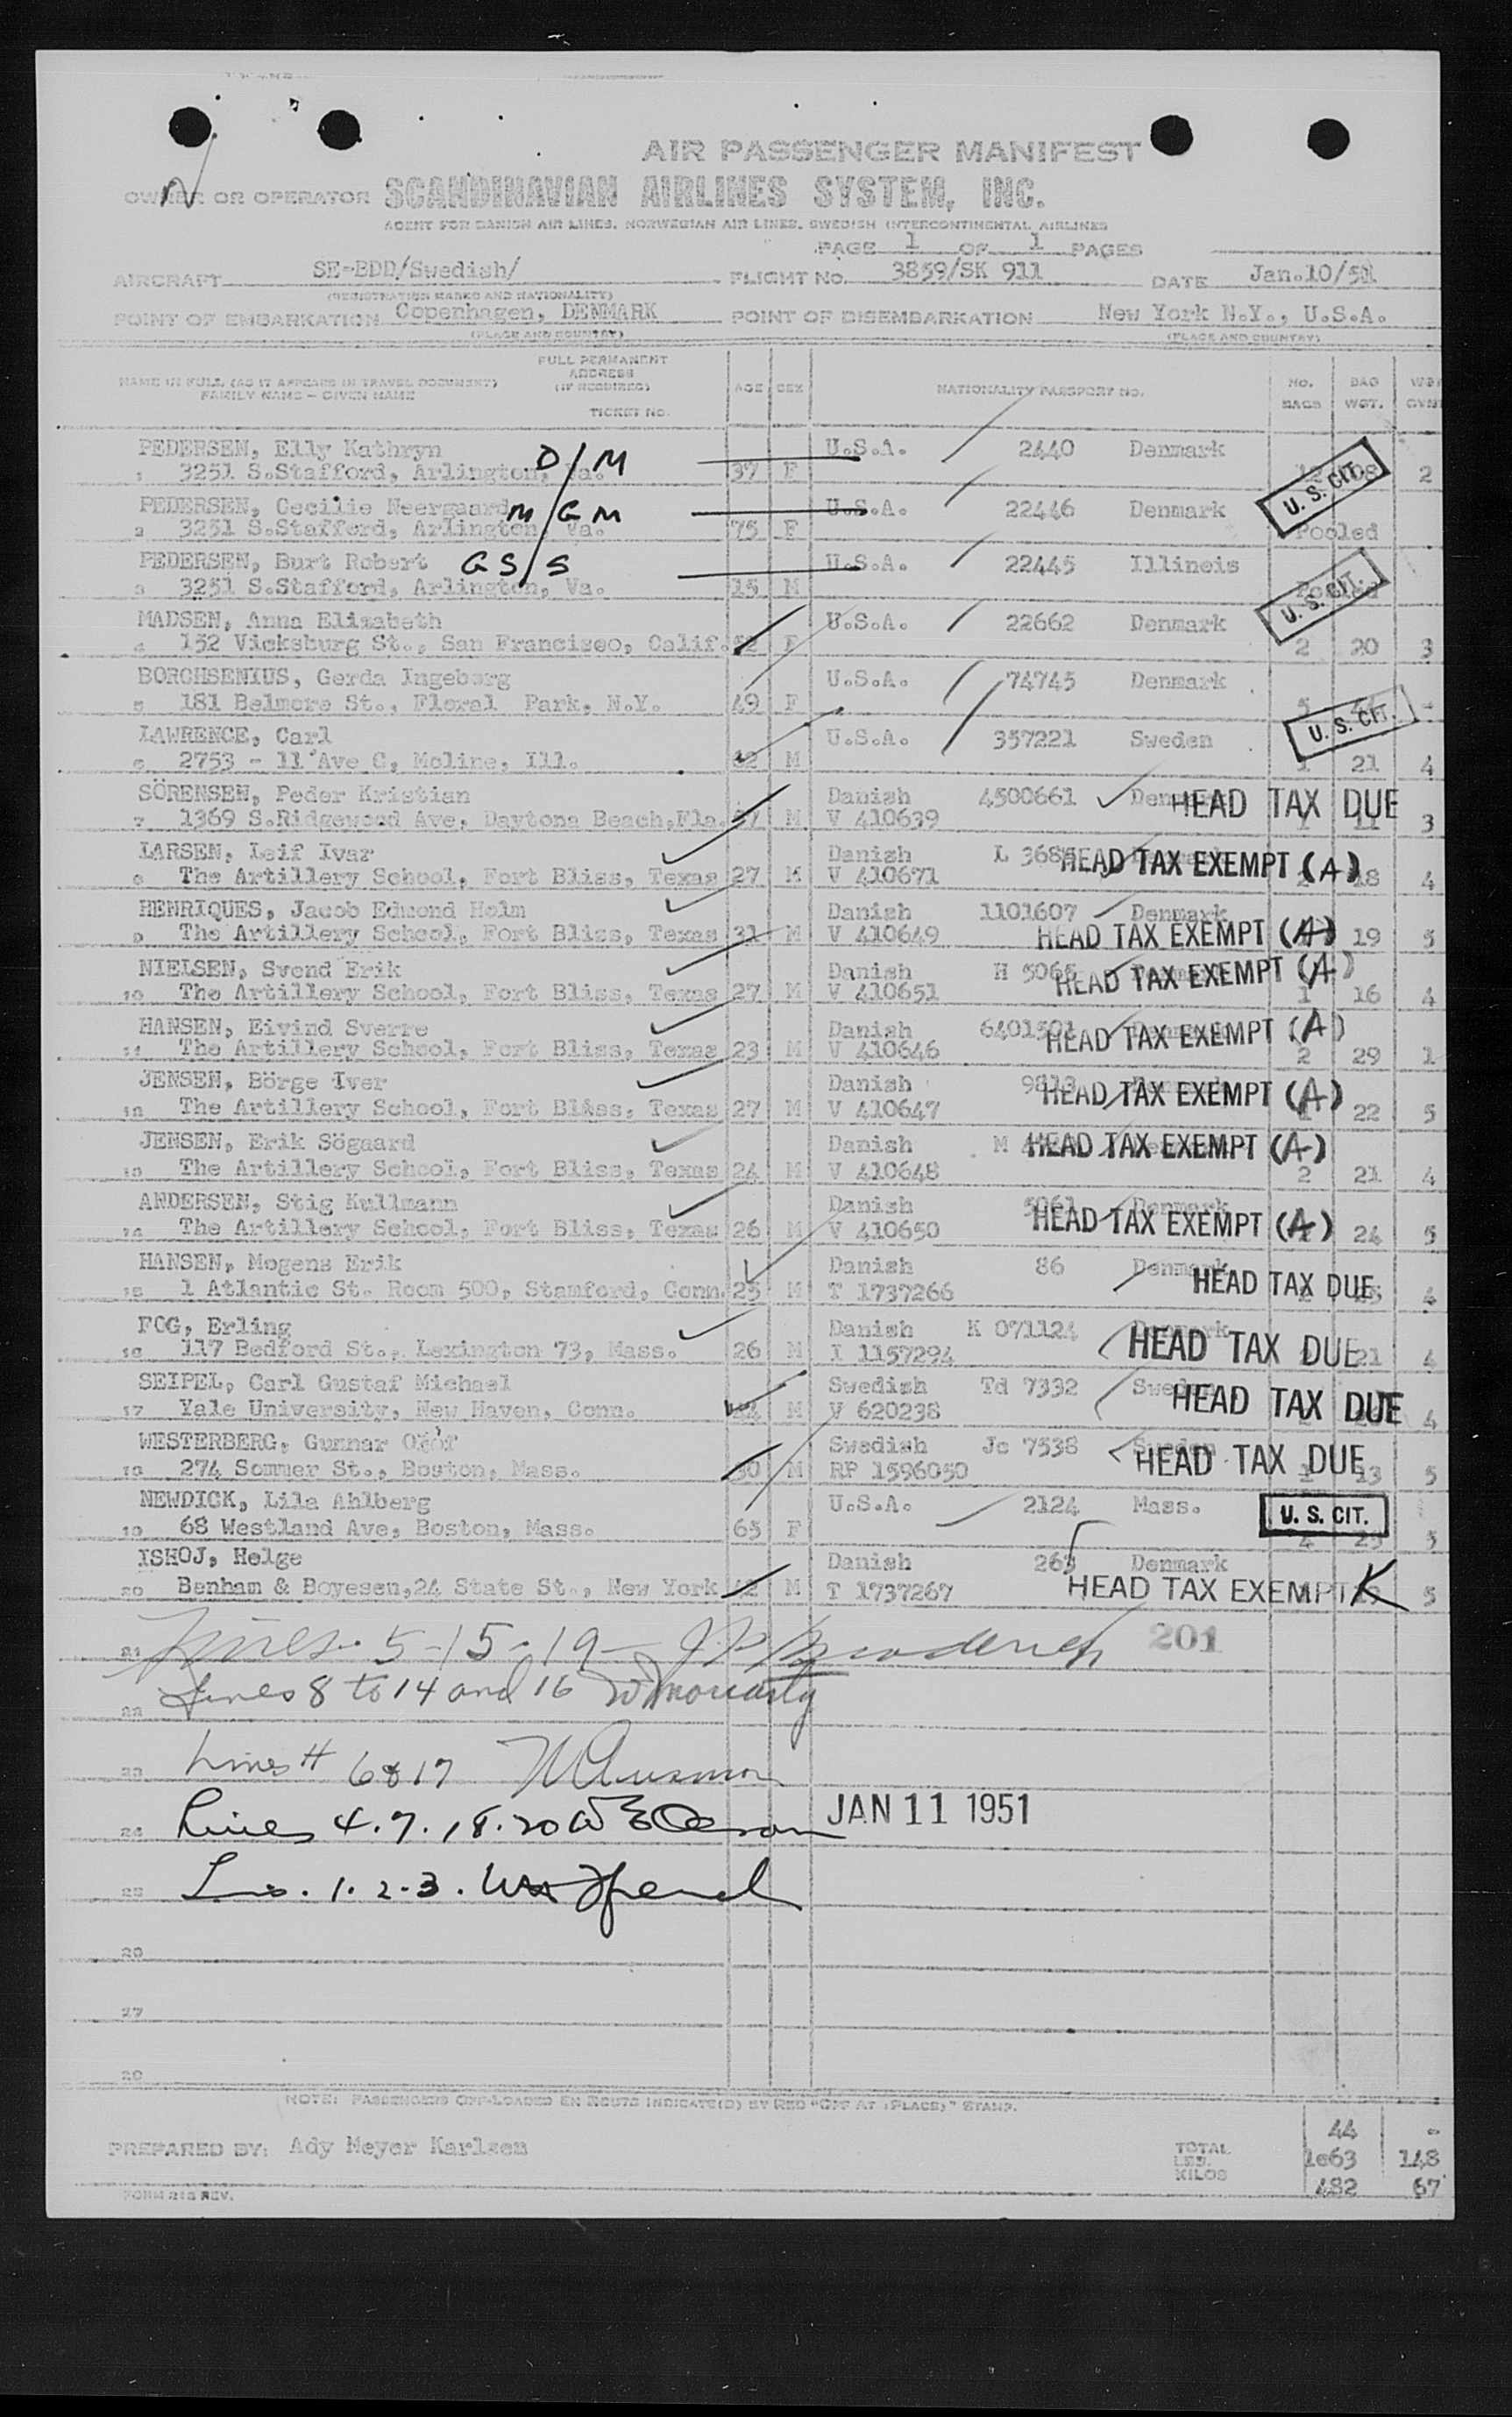 AIR PASSENGER MANIFEST
OWNER OR OPERATOR SCANDINAVIAN AIRLINES SYSTEM, INC.
AGENT FOR DANISH AIR LINES, NORWEGIAN AIR LINES, SWEDISH INTERCONTINENTAL AIRLINES
PAGE 1 OF 1 PAGES
AIRCRAFT SE-BDD/Swedish/ FLIGHT NO. 3859/SK 911 DATE Jan.10/51
(REGISTRATION MARKS AND NATIONALITY)
POINT OF EMBARKATION Copenhagen, DENMARK POINT OF DISEMBARKATION New York N.Y., U.S.A.
(PLACE AND COUNTRY) (PLACE AND COUNTRY)
NAME IN FULL (AS IT APPEARS IN TRAVEL DOCUMENT) FAMILY NAME - GIVEN NAME FULL PERMANENT ADDRESS (IF REQUIRED) TICKET NO. AGE SEX NATIONALITY PASSPORT NO. NO. BAGS BAG WGT.
PEDERSEN, Elly Kathryn D/M U.S.A. 2440 Denmark
1 3251 S.Stafford, Arlington, Va. 37 F U.S. CIT. 2
PEDERSEN, Cecilie Neergaard M/GM U.S.A. 22446 Denmark
2 3251 S.Stafford, Arlington, Va. 75 F Pooled
PEDERSEN, Burt Robert GS/S U.S.A. 22445 Illinois
3 3251 S.Stafford, Arlington, Va. 15 M Pooled U.S. CIT.
MADSEN, Anna Elisabeth U.S.A. 22662 Denmark
4 152 Vicksburg St., San Francisco, Calif. 52 F 2 20 3
BORCHSENIUS, Gerda Ingeborg U.S.A. 74745 Denmark
5 181 Belmore St., Floral Park, N.Y. 49 F 5 U.S. CIT. -
LAWRENCE, Carl U.S.A. 357221 Sweden
6 2753 - 11 Ave C, Moline, Ill. M 1 21 4
SÖRENSEN, Peder Kristian Danish 4500661 Denmark HEAD TAX DUE
7 1369 S.Ridgewood Ave, Daytona Beach,Fla. M V 410639 11 3
LARSEN, Leif Ivar Danish L HEAD TAX EXEMPT (A)
8 The Artillery School, Fort Bliss, Texas 27 M V 410671 18 4
HENRIQUES, Jacob Edmond Holm Danish 1101607 Denmark
9 The Artillery School, Fort Bliss, Texas 31 M V 410649 HEAD TAX EXEMPT (A) 19 5
NIELSEN, Svend Erik Danish H 5065 HEAD TAX EXEMPT (A)
10 The Artillery School, Fort Bliss, Texas 27 M V 410651 1 16 4
HANSEN, Eivind Sverre Danish 6401501 HEAD TAX EXEMPT (A)
11 The Artillery School, Fort Bliss, Texas 23 M V 410646 2 29 1
JENSEN, Börge Iver Danish HEAD TAX EXEMPT (A)
12 The Artillery School, Fort Bliss, Texas 27 M V 410647 22 5
JENSEN, Erik Sögaard Danish M HEAD TAX EXEMPT (A)
13 The Artillery School, Fort Bliss, Texas 24 M V 410648 2 21 4
ANDERSEN, Stig Kullmann Danish 5061 Denmark
14 The Artillery School, Fort Bliss, Texas 26 M V 410650 HEAD TAX EXEMPT (A) 24 5
HANSEN, Mogens Erik Danish 86 Denmark HEAD TAX DUE
15 1 Atlantic St. Room 500, Stamford, Conn. 25 M T 1737266 4
FOG, Erling Danish K 071124 Denmark HEAD TAX DUE
16 117 Bedford St., Lexington 73, Mass. 26 M I 1157294 21 4
SEIPEL, Carl Gustaf Michael Swedish Td 7332 Sweden HEAD TAX DUE
17 Yale University, New Haven, Conn. M V 620238 4
WESTERBERG, Gunnar Olof Swedish Jc 7538 Sweden HEAD TAX DUE
18 274 Sommer St., Boston, Mass. 30 M RP 1596050 1 13 5
NEWDICK, Lila Ahlberg U.S.A. 2124 Mass. U.S. CIT.
19 68 Westland Ave, Boston, Mass. 65 F 5
ISHOJ, Helge Danish 265 Denmark
20 Benham & Boyesen,24 State St., New York 42 M T 1737267 HEAD TAX EXEMPT K 5
21 Lines 5-15-19 201
22 Lines 8 to 14 and 16 W Moriarty
23 Lines # 6 & 17
24 Lines 4.7.18.20 JAN 11 1951
25 1.2.3.
26
27
28
NOTE: PASSENGERS OFF-LOADED EN ROUTE INDICATE(D) BY RED "OFF AT (PLACE)" STAMP.
PREPARED BY: Ady Meyer Karlsen TOTAL 44 -
LBS. 1063 148
KILOS 482 67
FORM 212 REV.